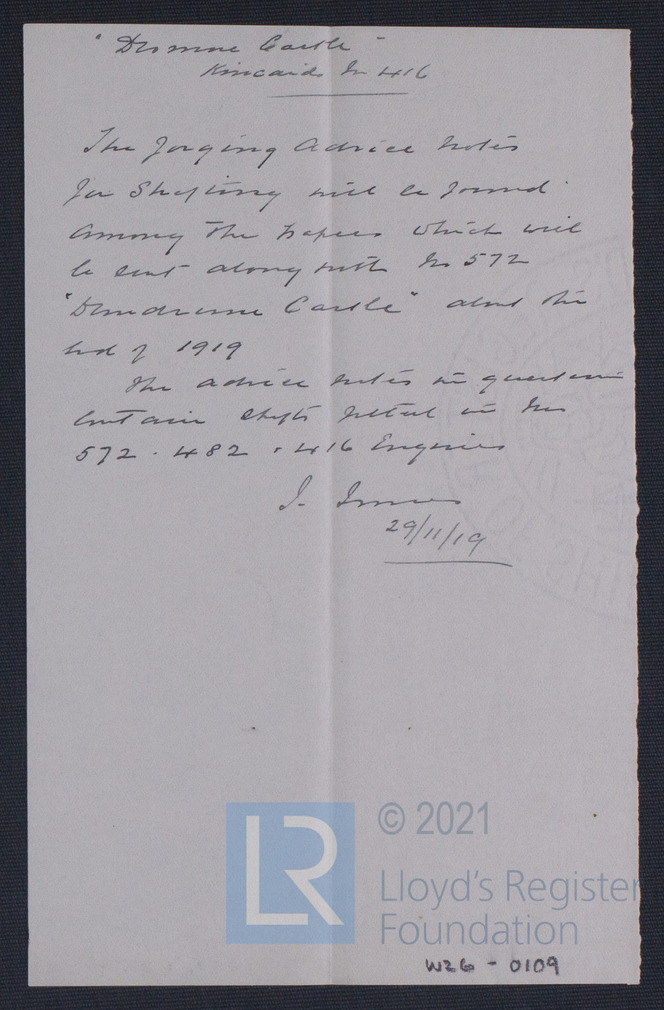 "Dromore Castle"
Kincaids No 416
The forging advice notes
for Shafting will be found
among the papers which will
be sent along with No 572
"Dundrum Castle" about the
end of 1919
The advice notes in question
contain shafts fitted in Nos
572 . 482 & 416 Engines
J. Innes
29/11/19
LR
© 2021
Lloyd's Register
Foundation
W26 - 0109